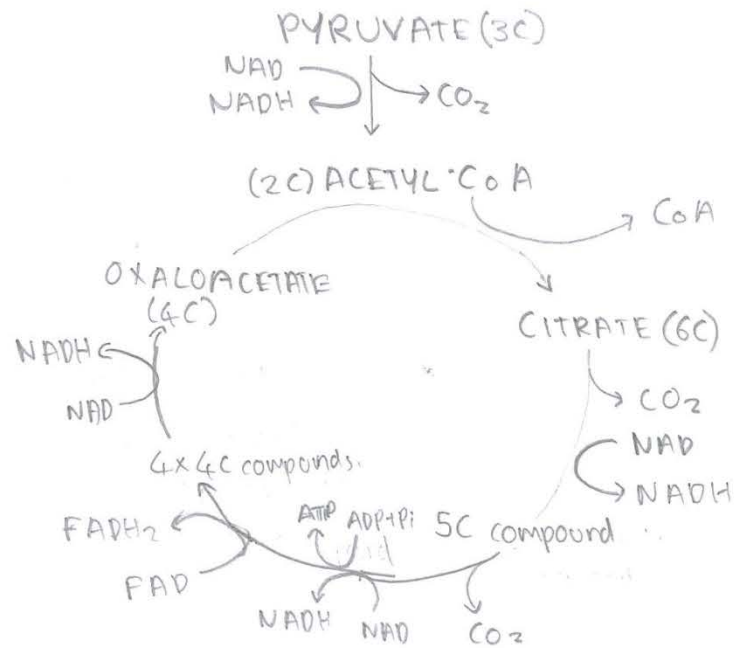 PYRUVATE (3C)
NAD
NADH
CO₂
(2C) ACETYL·CoA
CoA
OXALOACETATE
(4C)
CITRATE (6C)
NADH
NAD
CO₂
NAD
NADH
4x4C compounds.
FADH₂
FAD
ATP
ADP+Pi
5C compound
NADH
NAD
CO₂